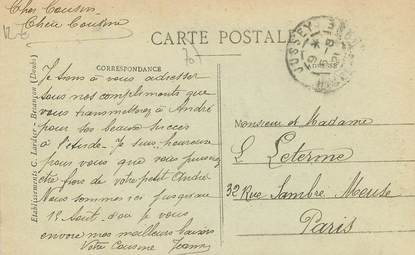 Cher Cousin
Chère Cousine
CARTE POSTALE
CORRESPONDANCE
Je tiens à vous adresser
tous nos compliments que
vous transmettrez à André
pour ses beaux succès
à l'étude. Je suis heureuse
pour vous que vous puissiez
être fiers de votre petit André
Nous sommes ici jusqu'au
15 Août. d'où je vous
envoie mes meilleurs baisers
Votre Cousine Jeanne
Etablissements C. Lardier - Besançon (Doubs)
JUSSEY
Monsieur et Madame
L Leterme
32 Rue Sambre Meuse
Paris